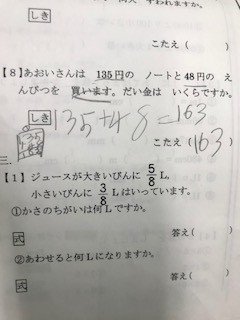 しき
こたえ (    )
【8】あおいさんは 135円の ノートと48円の え
んぴつを 買います。だい金は いくらですか。
しき 135+48=163
こたえ (163)
三
【1】ジュースが大きいびんに 5/8 L,
小さいびんに 3/8 Lはいっています。
①かさのちがいは何Lですか。
式 答え(    )
②あわせると何Lになりますか。
答え(    )
式